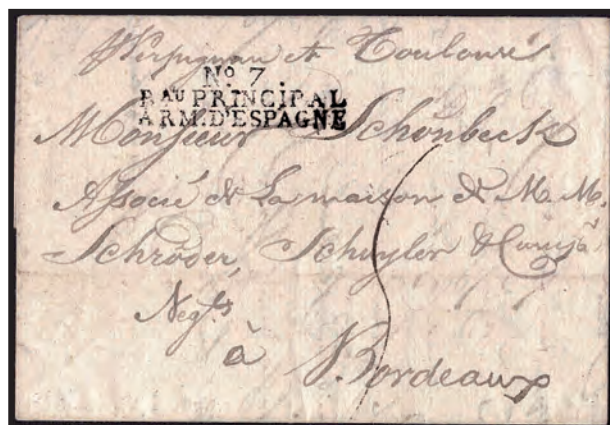 Perpignan et Toulouse
Nº 7
BAU PRINCIPAL
ARM. D'ESPAGNE
Monsieur Schönbeck
Associé de La maison de M. M.
Schröder, Schuyler & Comp.
Negts
à Bordeaux